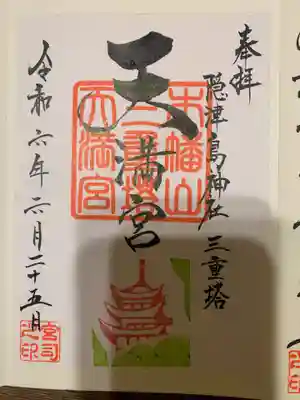 奉拝
隠津島神社 三重塔
天満宮
木幡山
三重塔
天満宮
令和六年六月二十五月
宮司之印